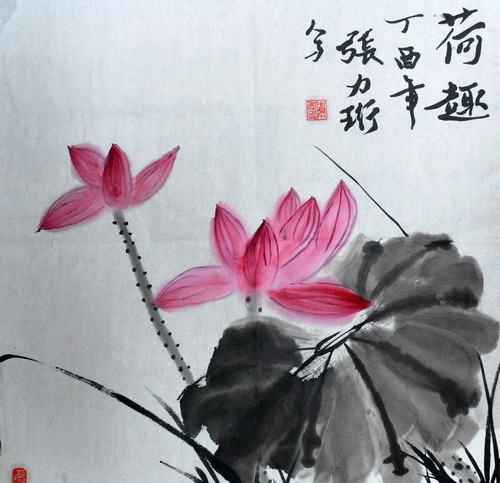 荷趣
丁酉年
張力珩
写